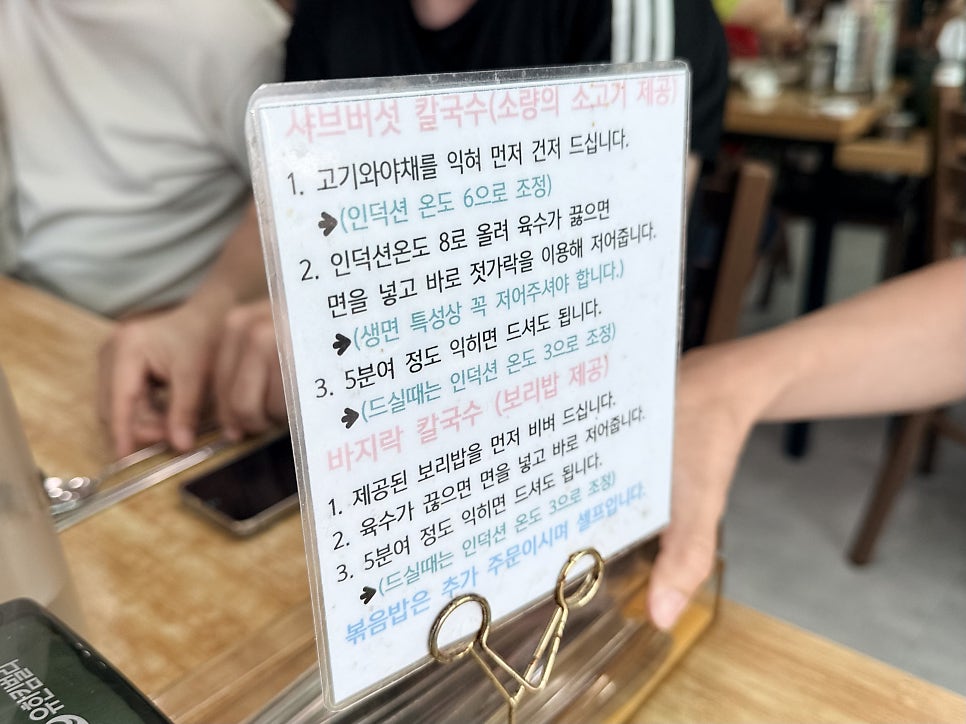 샤브버섯 칼국수(소량의 소고기 제공)
1. 고기와야채를 익혀 먼저 건저 드십니다.
➔(인덕션 온도 6으로 조정)
2. 인덕션온도 8로 올려 육수가 끓으면
면을 넣고 바로 젓가락을 이용해 저어줍니다.
➔(생면 특성상 꼭 저어주셔야 합니다.)
3. 5분여 정도 익히면 드셔도 됩니다.
➔(드실때는 인덕션 온도 3으로 조정)
바지락 칼국수 (보리밥 제공)
1. 제공된 보리밥을 먼저 비벼 드십니다.
2. 육수가 끓으면 면을 넣고 바로 저어줍니다.
3. 5분여 정도 익히면 드셔도 됩니다.
➔(드실때는 인덕션 온도 3으로 조정)
볶음밥은 추가 주문이시며 셀프입니다.